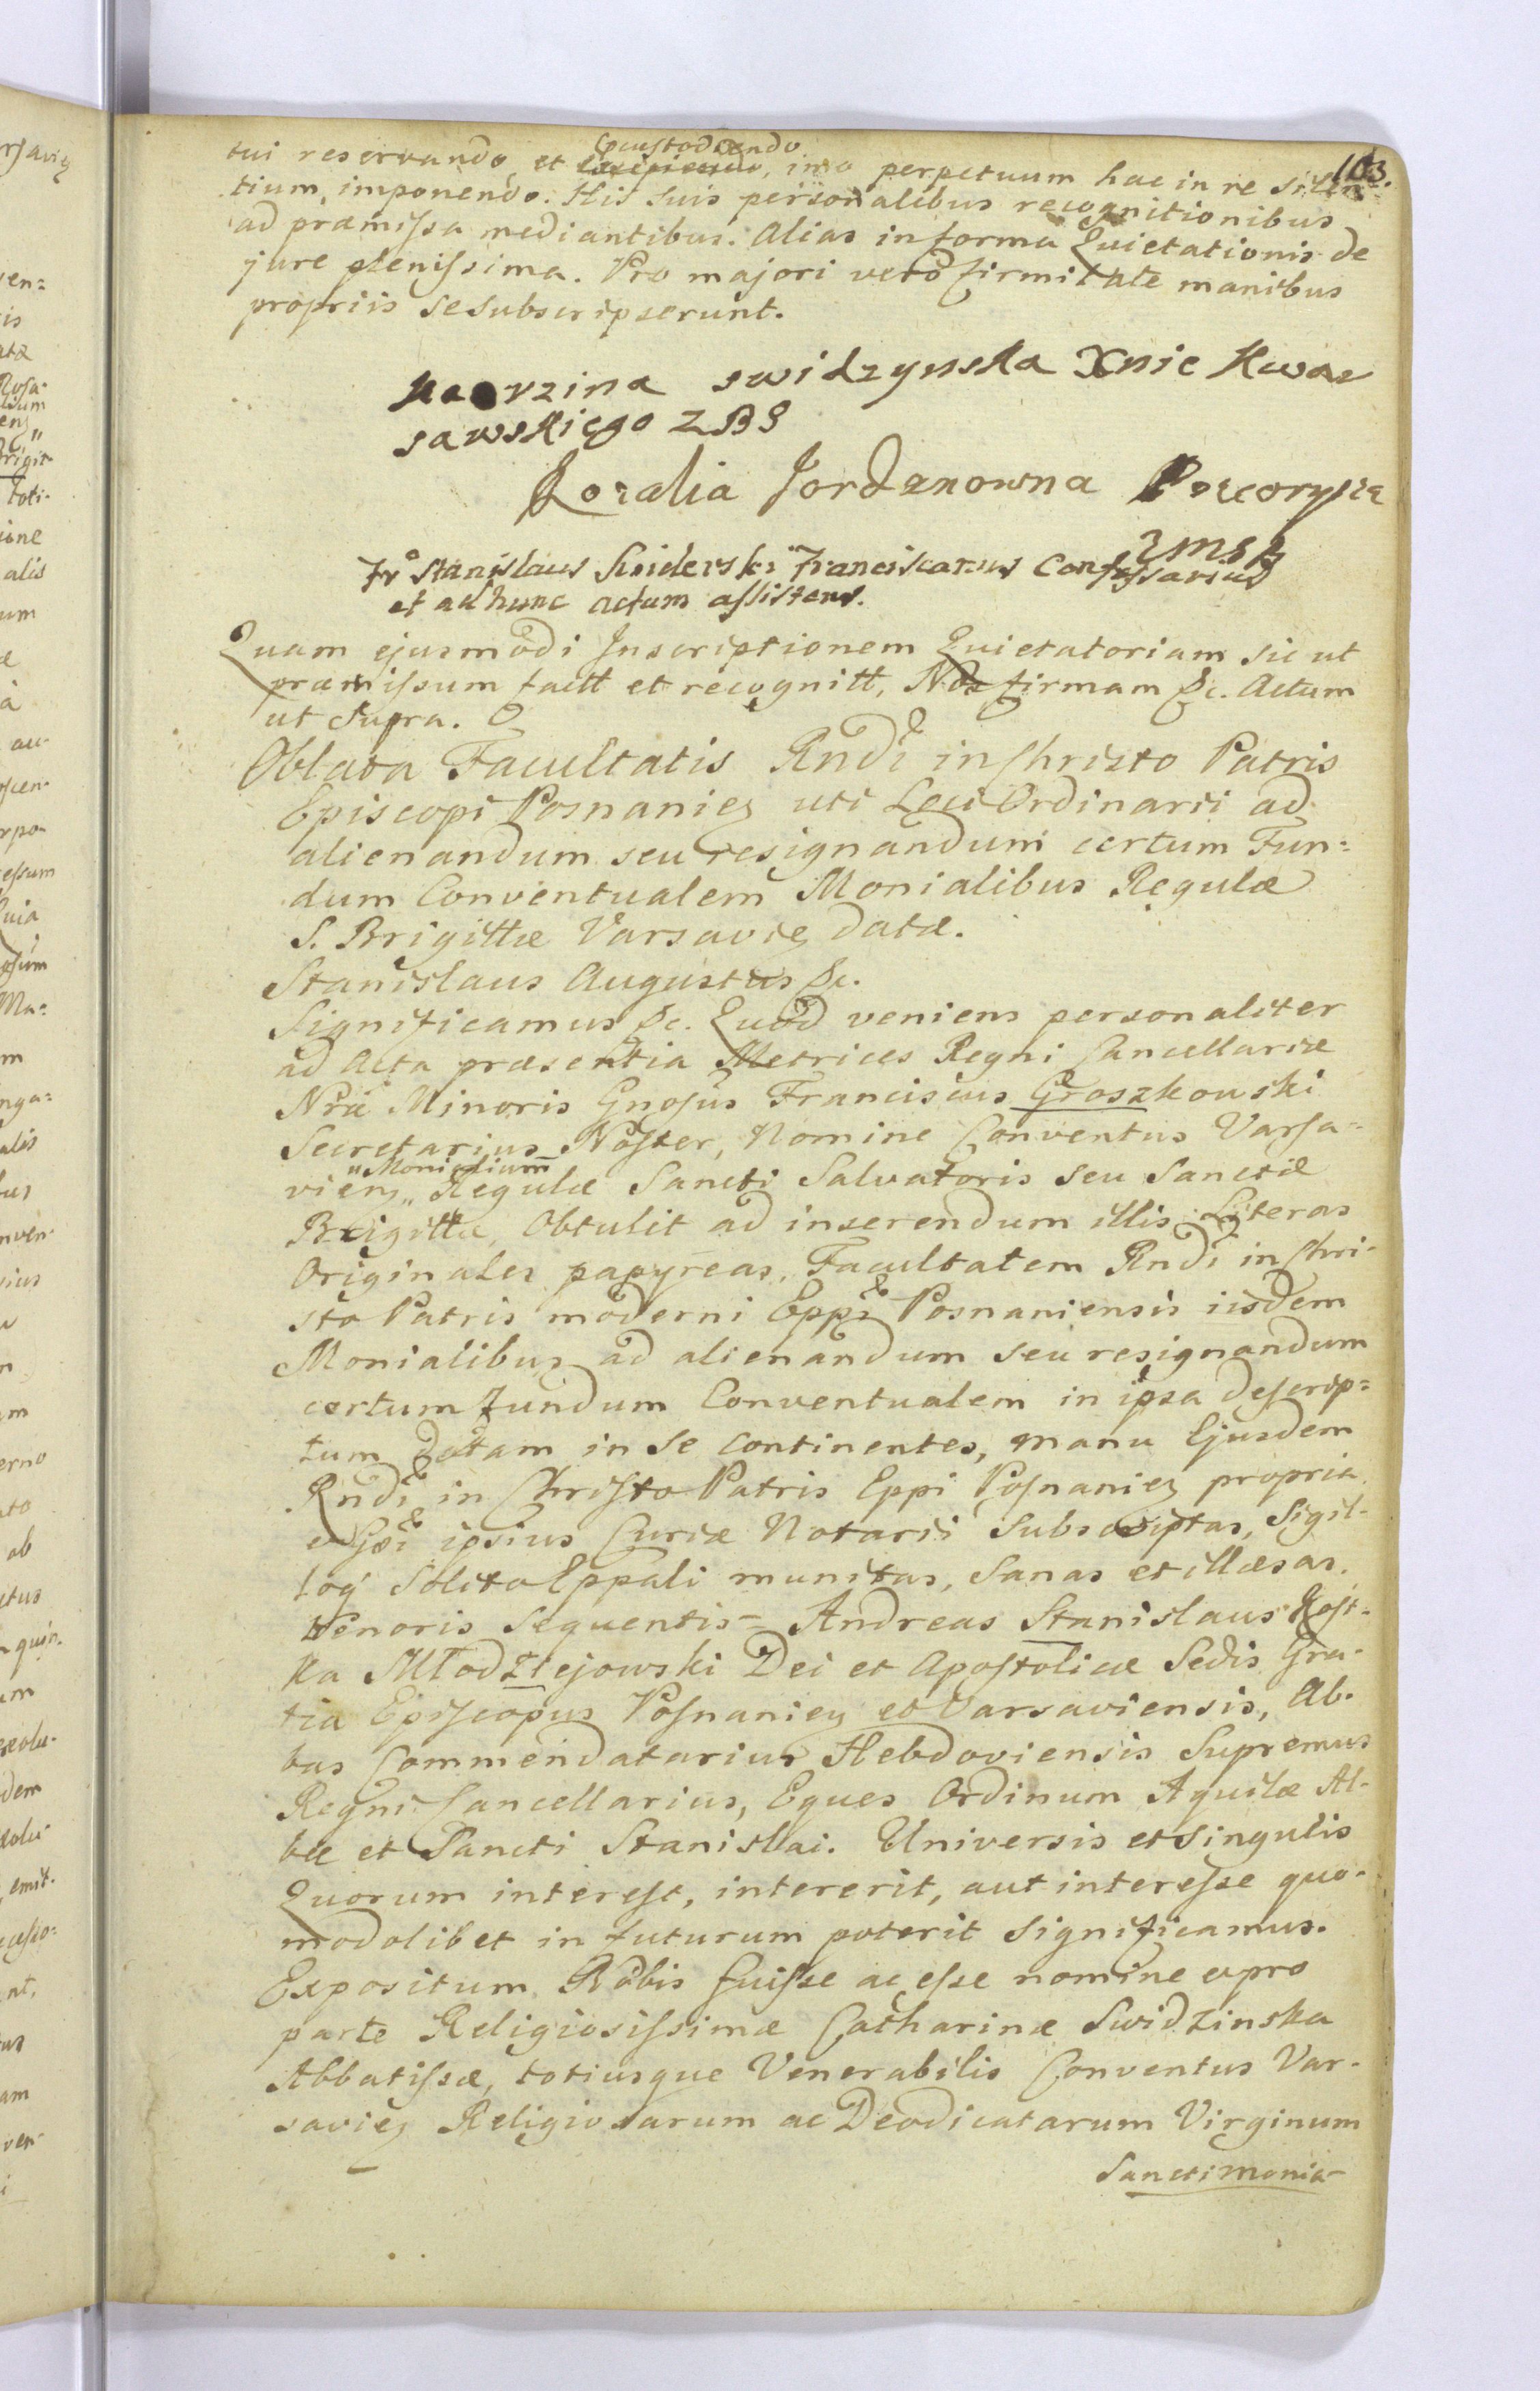 103.
tui reservando, et custodiendo, imo perpetuum hac in re silen=
tium, imponendo. His suis personalibus recognitionibus
ad præmissa mediantibus. Alias in forma Quietationis de
jure plenissima. Pro majori vero firmitate manibus
propriis se subscripserunt.
swidzynska Xnie Kwar
sawskiego ZBS
Rozalia Jordanowna
ZMSB
Fr Stanislaus Sniderski Franciscanus Confessarius
et ad hunc actum assistens.
Quam ejusmodi Inscriptionem Quietatoriam sic ut
præmissum factt et recognitt, Nos firmam &c. Actum
ut Supra.
Oblata Facultatis Rndi in Christo Patris
Episcopi Posnanien uti Loci Ordinarii ad
alienandum seu resignandum certum Fun=
dum Conventualem Monialibus Regulæ
S. Brigittæ Varsavien datæ.
Stanislaus Augustus &c.
Significamus &c. Quod veniens personaliter
ad Acta præsentia Metrices Regni Cancellariæ
Nræ Minoris Gnosus Franciscus Groszkowski
Secretarius Noster, Nomine Conventus Varsa-
viens „Monialium" Regulæ Sancti Salvatoris seu Sanctæ
Brigittæ, Obtulit ad inserendum illis Literas
Originales papyreas, Facultatem Rndi in Chri-
sto Patris moderni Eppi Posnaniensis iisdem
Monialibus ad alienandum seu resignandum
certum fundum Conventualem in ipsa descrip=
tum datam in se continentes, manu Ejusdem
Rndi in Christo Patris Eppi Posnanien propria
et ipsius Curiæ Notarii subscriptas, Sigil-
loq solito Eppali munitas, sanas et illæsas.
tenoris sequentis – Andreas Stanislaus Kost-
ka Młodziejowski Dei et Apostolicæ Sedis Gra-
tia Episcopus Posnanien et Varsaviensis, Ab-
bas Commendatarius Hebdoviensis Supremus
Regni Cancellarius, Eques Ordinum Aquilæ Al-
bæ et Sancti Stanislai. Universis et singulis
Quorum interest, intererit, aut interesse quo-
modolibet in futurum poterit significamus.
Expositum Nobis fuisse ac esse nomine et pro
parte Religiosissimæ Catharinæ Swidzinska
Abbatissæ, totiusque Venerabilis Conventus Var-
savien Religiosarum ac Deodicatarum Virginum
Sanctimonia-